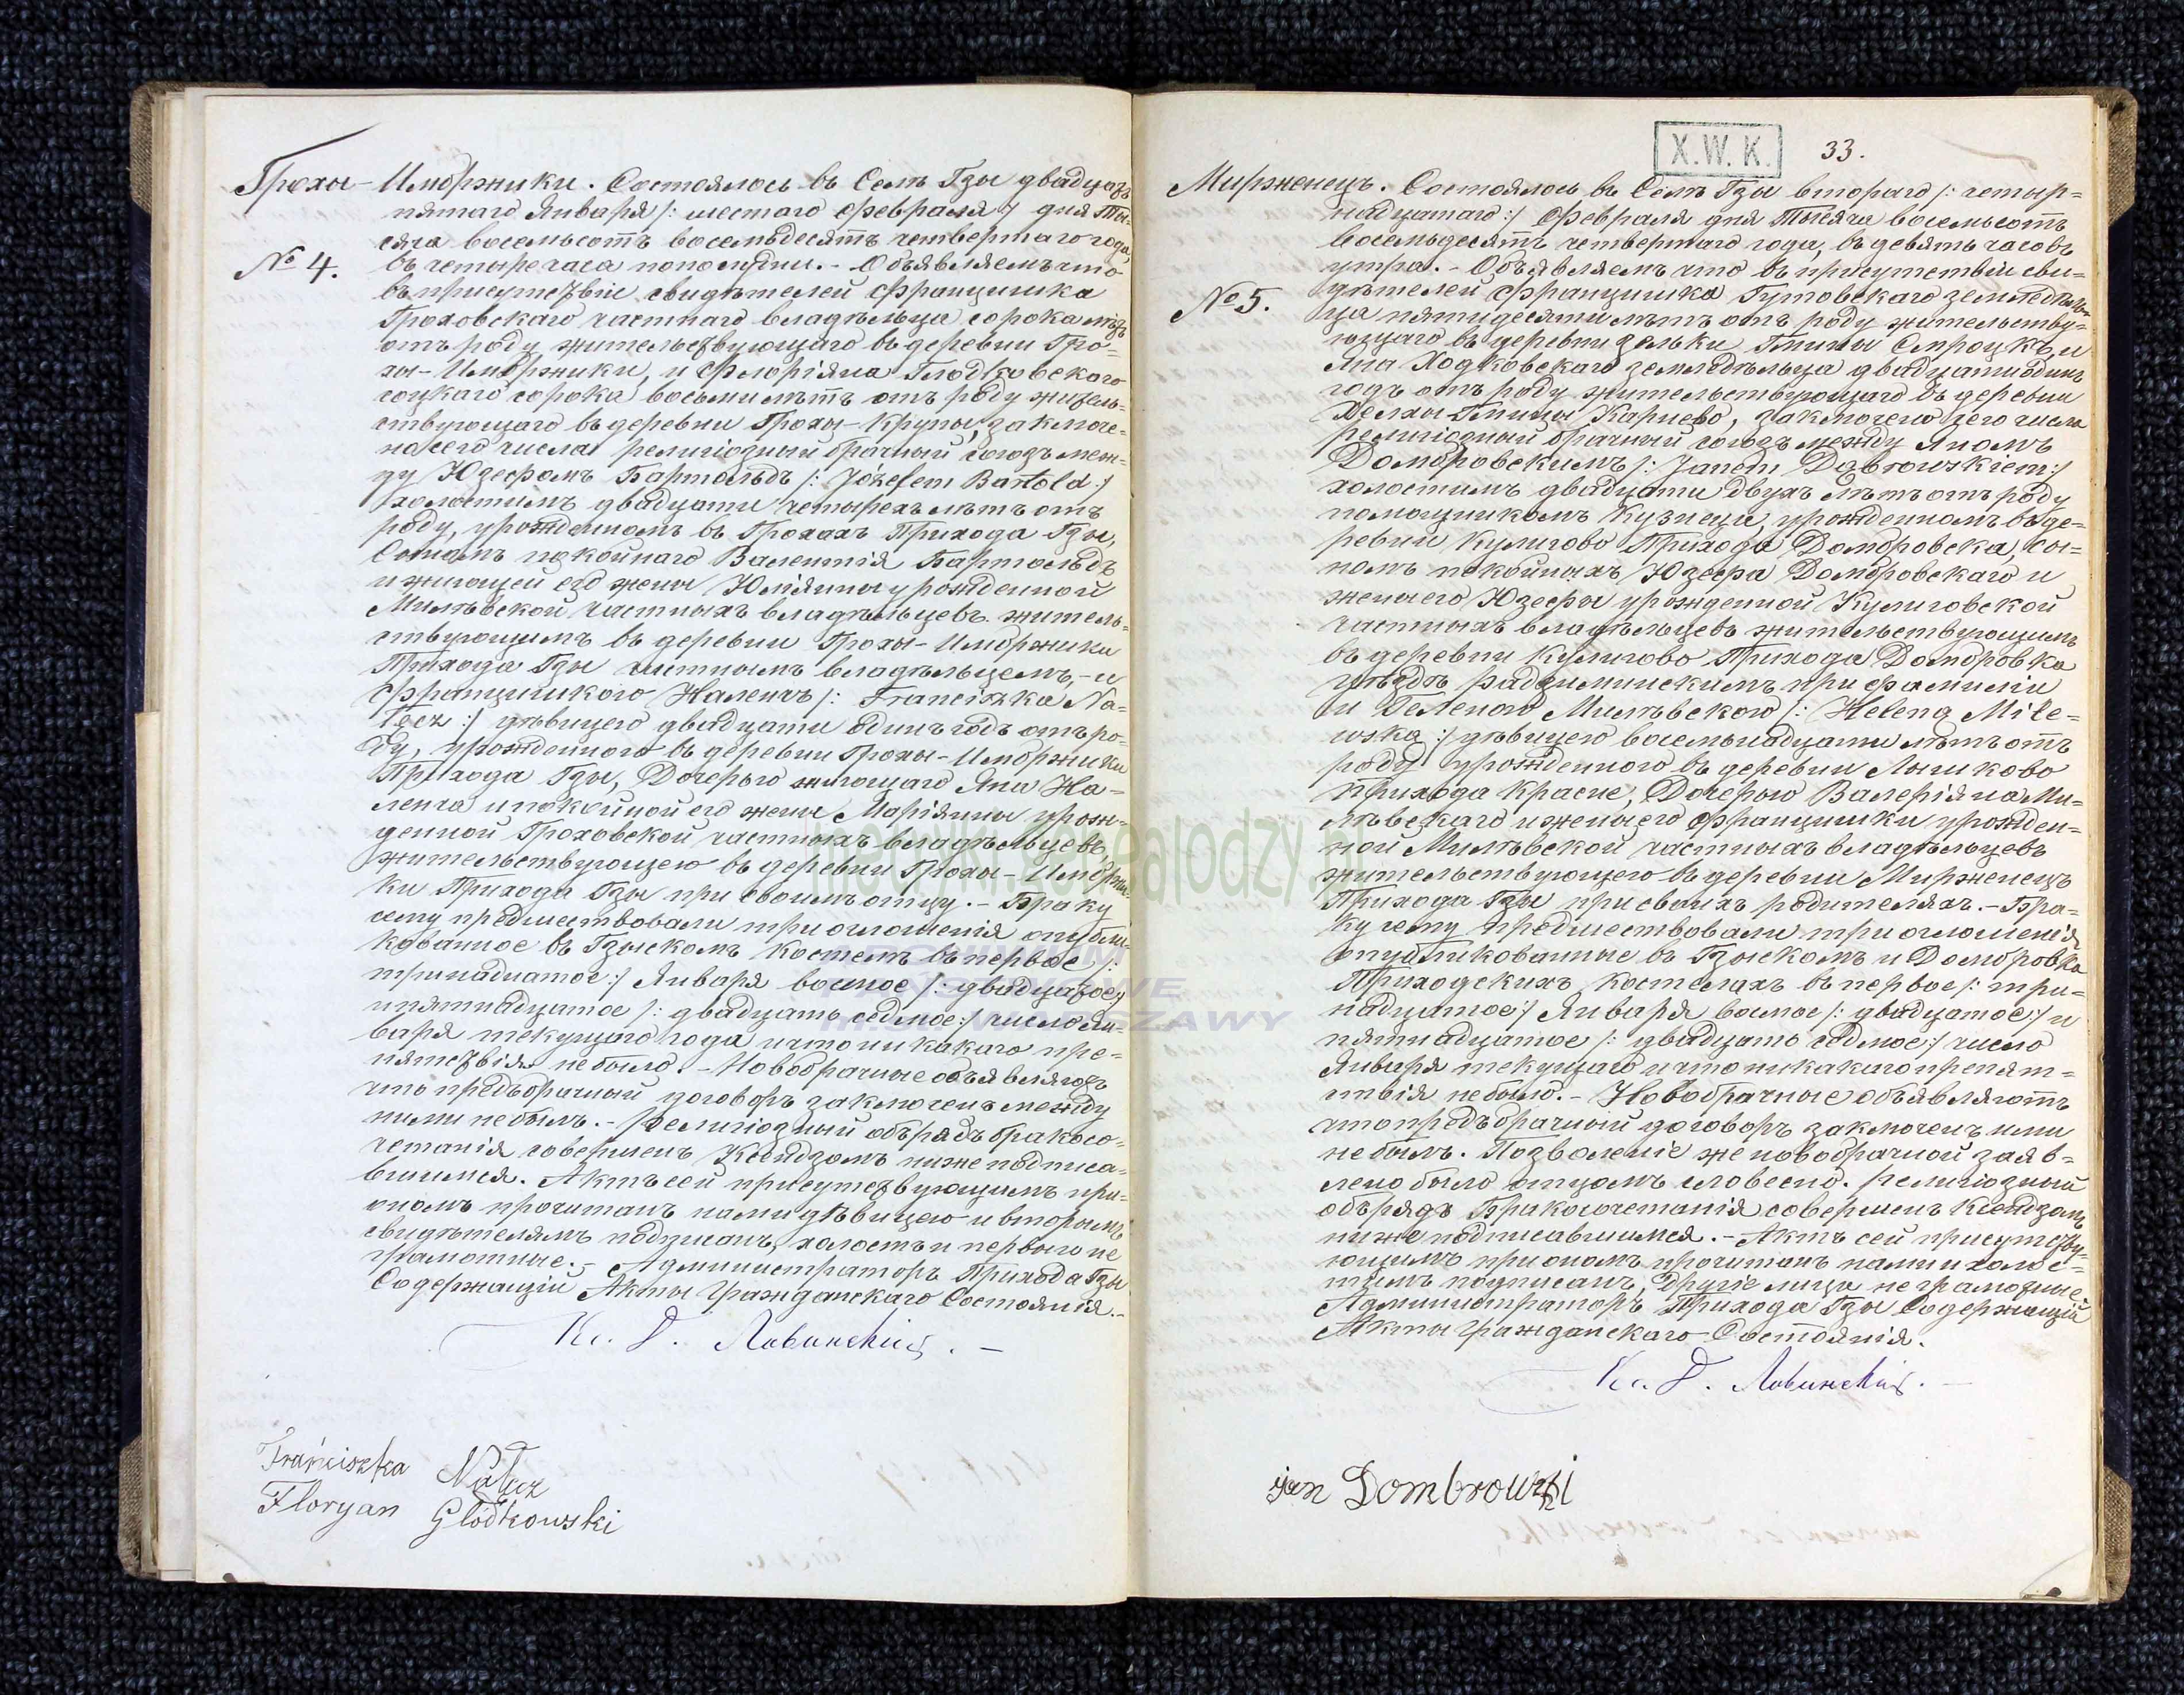 Грохы-Имбржики. Состоялось въ Селѣ Гзы двадцать
пятаго Января /: шестаго Февраля :/ дня Ты-
сяча восемьсотъ восемьдесятъ четвертаго года,
№ 4.
въ четыре часа пополудни. - Объявляемъ что
въ присутствіи свидѣтелей Францишка
Гроховскаго частнаго владѣльца сорока лѣтъ
отъ роду жительствующаго въ деревни Гро-
хы-Имбржики, и Флоріяна Глодковскаго
соцкаго сорока восьми лѣтъ отъ роду житель-
ствующаго въ деревни Грохы-Крупы, заключе-
но сего числа религіозный брачный союзъ меж-
ду Юзефомъ Бартольдъ /: Józefem Bartold :/
холостымъ двадцати четырехъ лѣтъ отъ
роду, урожденномъ въ Грохахъ Прихода Гзы,
Сыномъ покойнаго Валентія Бартольдъ
и жиющей его жены Юліянны урожденной
Милѣвской частныхъ владѣльцевъ житель-
ствующимъ въ деревни Грохы-Имбржики
Прихода Гзы частнымъ владѣльцемъ, - и
Францишкою Наленчъ /: Franciszka Na-
łęcz :/ дѣвицею двадцати одинъ годъ отъ ро-
ду, урожденною въ деревни Грохы-Имбржики
Прихода Гзы, Дочерью жиющаго Яна На-
ленча и покойной его жены Маріянны урож-
денной Гроховской частныхъ владѣльцевъ,
жительствующею въ деревни Грохы-Имбржи-
ки Прихода Гзы при своимъ отцу. - Браку
сему предшествовали три оглошенія опубли-
кованное въ Гзыскомъ Костелѣ въ первое /:
тринадцатое :/ Января восмое /: двадцатое :/
и пятнадцатое /: двадцать седмое :/ число Ян-
варя текущаго года и что никакаго пре-
пятствія не было. - Новобрачные объявляютъ
что предъбрачный договоръ заключенъ между
ними не былъ. - Религіозный обърядъ бракосо-
четанія совершенъ Ксендзомъ ниже подписа-
вшимся. Актъ сей присутствующимъ при-
ономъ прочитанъ нами дѣвицею и вторымъ
свидѣтелямъ подписанъ, холостъ и первый не
грамотные. - Администраторъ Прихода Гзы
Содержащій Акты Гражданскаго Состоянія. -
Кс. Ѳ. Лавинскій. -
Franciszka Nałęcz
Floryan Głodkowski
X.W.K.
33.
Мирженецъ. Состоялось въ Селѣ Гзы втораго /: четыр-
надцатаго :/ Февраля дня Тысяча восемьсотъ
восемьдесятъ четвертаго года, въ девять часовъ
утра. - Объявляемъ что въ присутствіи сви-
№ 5.
дѣтелей Францишка Гутовскаго земледѣль-
ца пятидесяти лѣтъ отъ роду жительству-
ющаго въ деревни Гмины Смроцкъ, и
Яна Ходковскаго земледѣльца двадцати одинъ
годъ отъ роду жительствующаго въ деревни
Гмины Карнево, заключено сего числа
религіозный брачный союзъ между Яномъ
Домбровскимъ /: Janem Dąbrowskiem :/
холостымъ двадцати двухъ лѣтъ отъ роду
помощникомъ Кузнеца, урожденномъ въ де-
ревни Кулигово Прихода Домбровска, Сы-
номъ покойныхъ Юзефа Домбровскаго и
жены его Юзефы урожденной Кулиговской
частныхъ владѣльцевъ жительствующимъ
въ деревни Кулигово Прихода Домбровка
Уѣздѣ Радзиминскимъ при фамиліи
и Геленою Милѣвскою /: Heleną Mile-
wska :/ дѣвицею восемьнадцати лѣтъ отъ
роду урожденною въ деревни Лышково
Прихода Красне, Дочерью Валеріяна Ми-
лѣвскаго и жены его Францишки урожден-
ной Милѣвской частныхъ владѣльцевъ
жительствующею въ деревни Мирженецъ
Прихода Гзы при своихъ родителяхъ. - Бра-
ку сему предшествовали три оглошенія
опубликованные въ Гзыскомъ и Домбровка
Приходскихъ Костелахъ въ первое /: три-
надцатое :/ Января восмое /: двадцатое :/ и
пятнадцатое /: двадцать седмое :/ число
Января текущаго и что никакаго препят-
ствія не было. - Новобрачные объявляютъ
что предъбрачный договоръ заключенъ ими
не былъ. Позволеніе же новобрачной заяв-
лено было отцомъ словесно. Религіозный
обърядъ Бракосочетанія совершенъ Ксендзомъ
ниже подписавшимся. - Актъ сей присутству-
ющимъ при ономъ прочитанъ нами и холос-
тымъ подписанъ, Другіе лица не грамотные.
Администраторъ Прихода Гзы Содержащій
Акты Гражданскаго Состоянія.
Кс. Ѳ. Лавинскій. -
jan Dombrowski
metryki.genealodzy.pl
ARCHIWUM
PAŃSTWOWE
M.ST.WARSZAWY